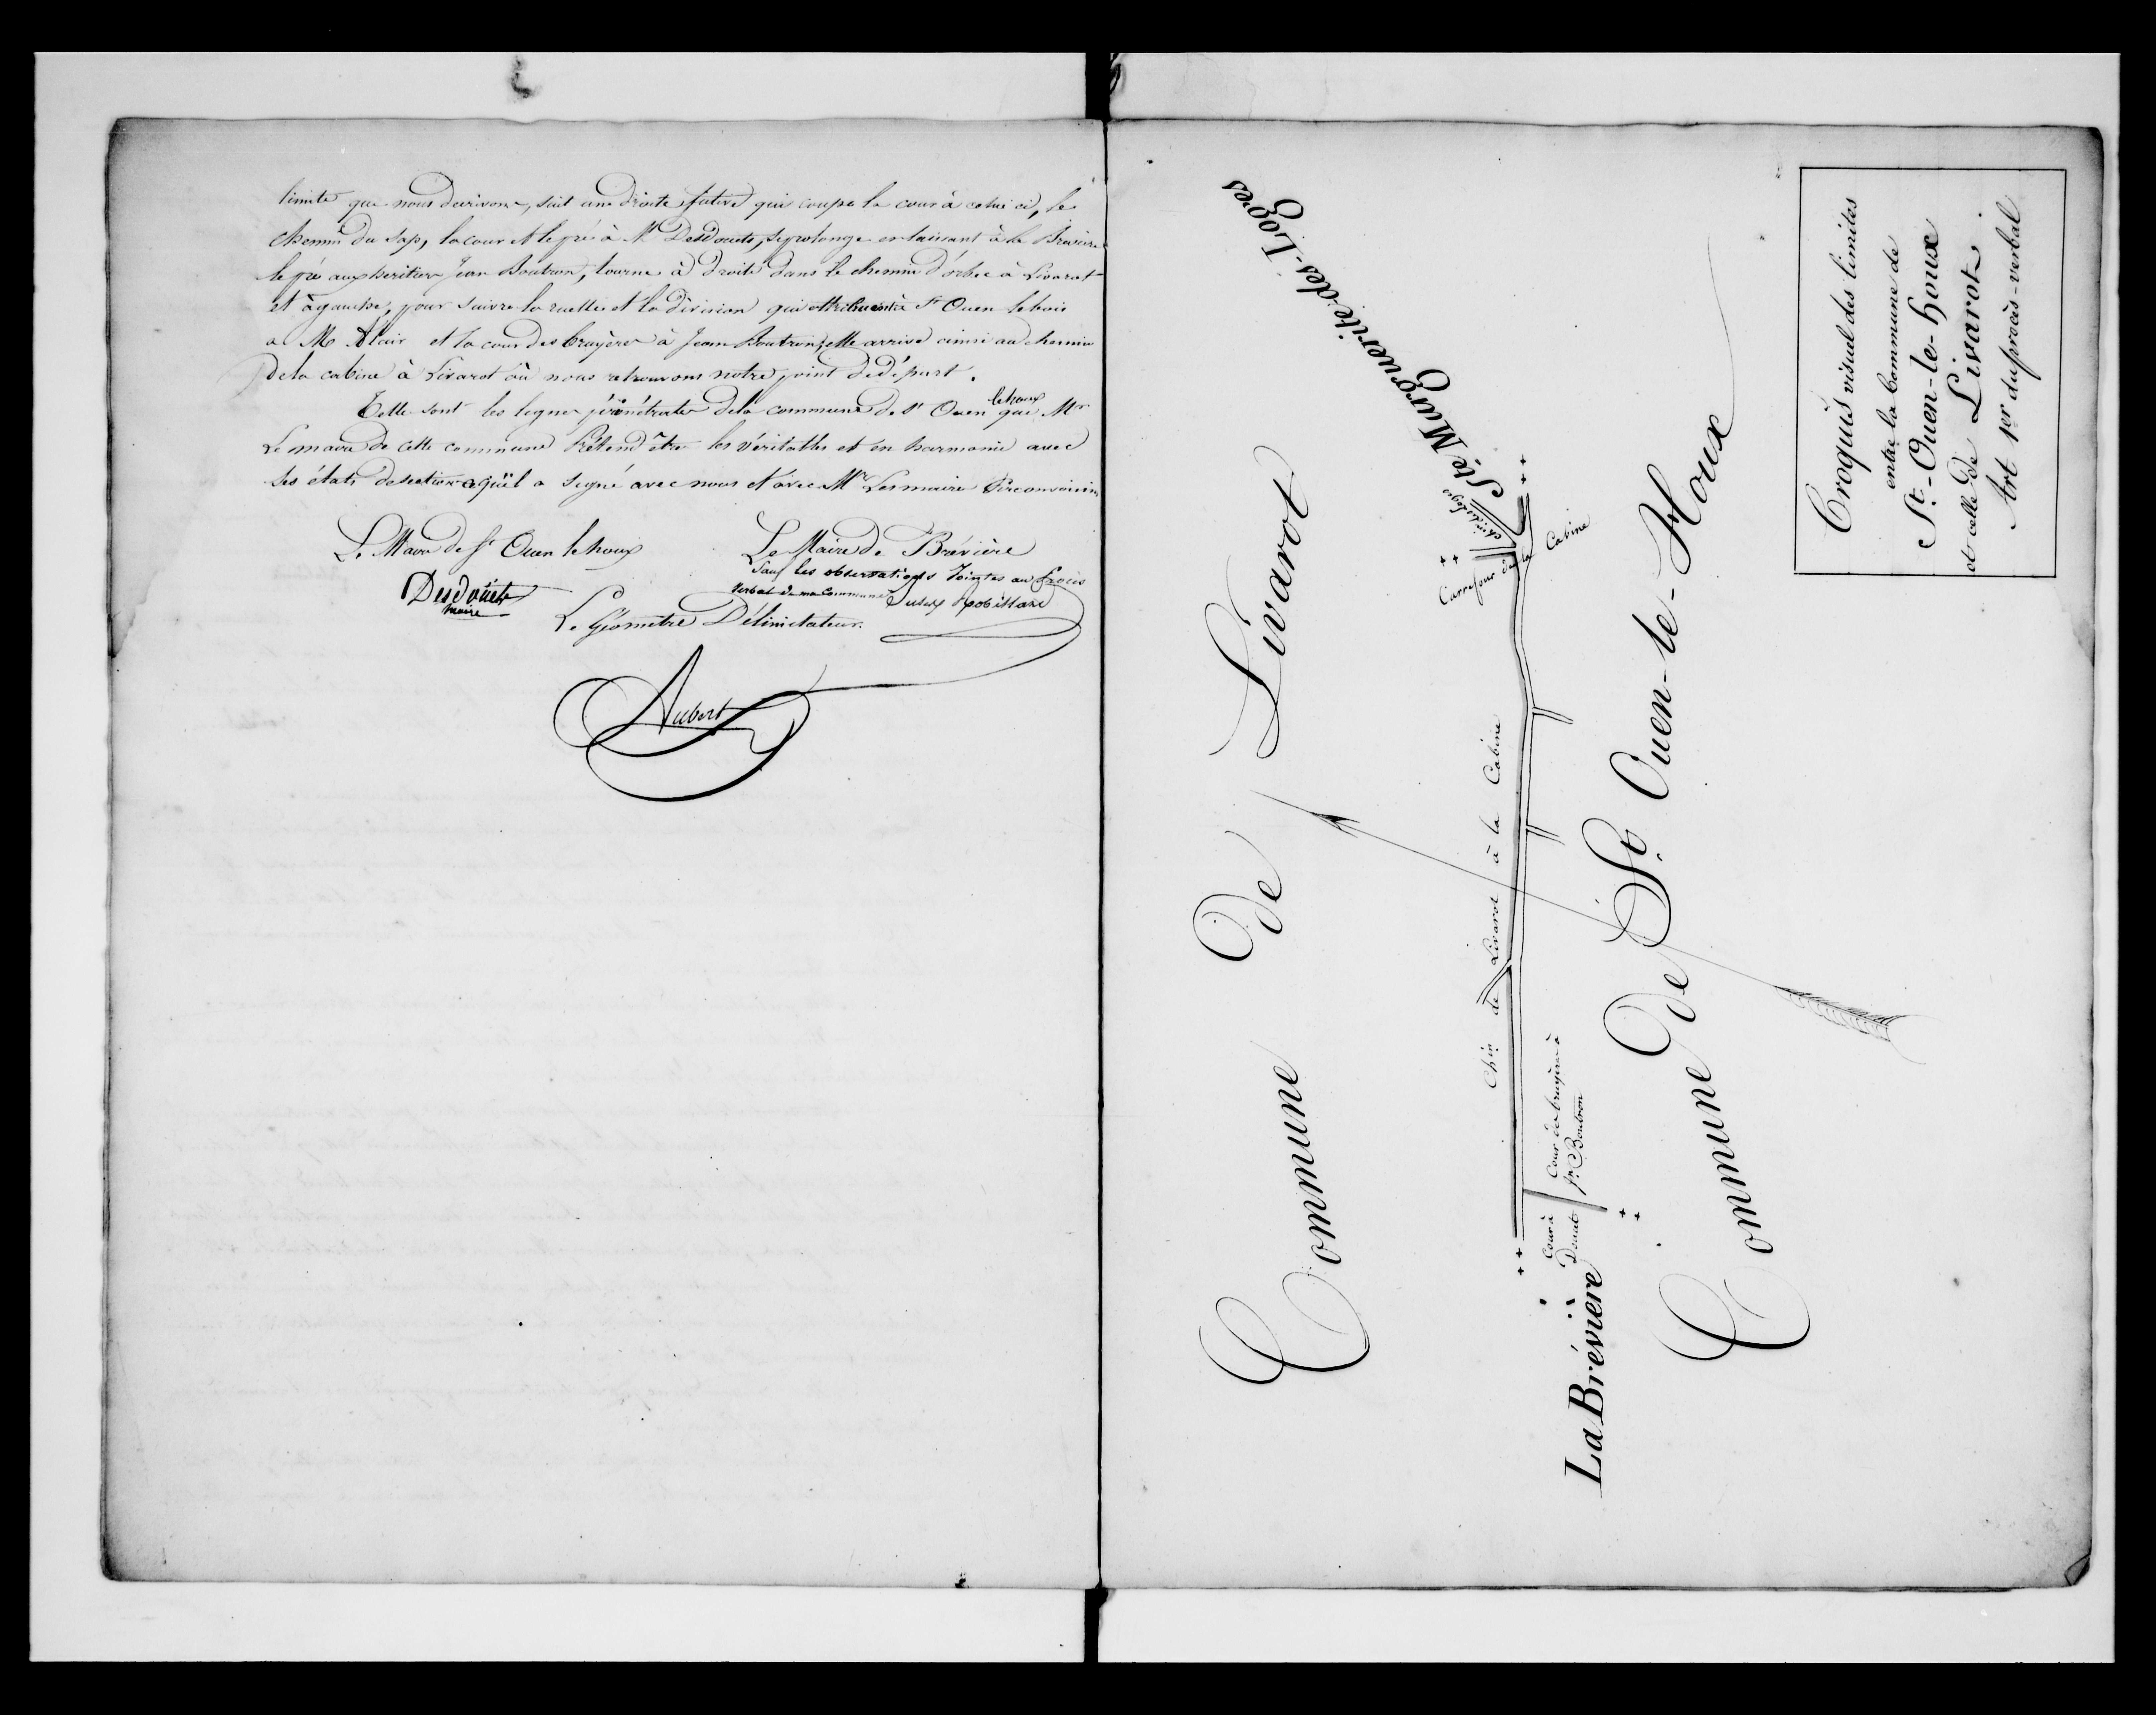 limite que nous décrivons, suit une droite fictive qui coupe la cour à celui ci, le
chemin du Sap, la cour et le pré à Mr Desdouets, se prolonge en laissant à la Brévière
le pré aux heritiers Jean Boutron, tourne à droite dans le chemin d'orbec à Livarot
et à gauche, pour suivre la ruelle et la division qui attribuent à St Ouen le bois
a Mr Alair et la cour des bruyères à Jean Boutron, elle arrive ainsi au chemin
de la cabine à Livarot où nous retrouvons notre point de départ.
Telle sont les lignes périmétrales de la commune de St Ouen le houx que Mr
Le maire de cette commune Prétend être les véritables et en harmonie avec
ses états de section et qu'il a signé avec nous et avec Mrs Les maires Circonvoisins
Le Maire de St Ouen le houx
Desdouets
maire
Le Maire de Brévière
Sauf les observations Jointes au Procès
Verbal de ma Commune
Robillard
Le Géomètre Délimitateur.
Aubert
Croquis visuel des limites
entre la Commune de
St.-Ouen-le-Houx
et celle de Livarot.
Art 1er du procès-verbal
Commune de Livarot
Ste Marguerite-des-Loges
ch. des Loges
Carrefour de la Cabine
Chin de Livarot à la Cabine
Cour des bruyères à
Jn Boutron
Cour à
Donat
La Brévière
Commune de St Ouen-le-Houx